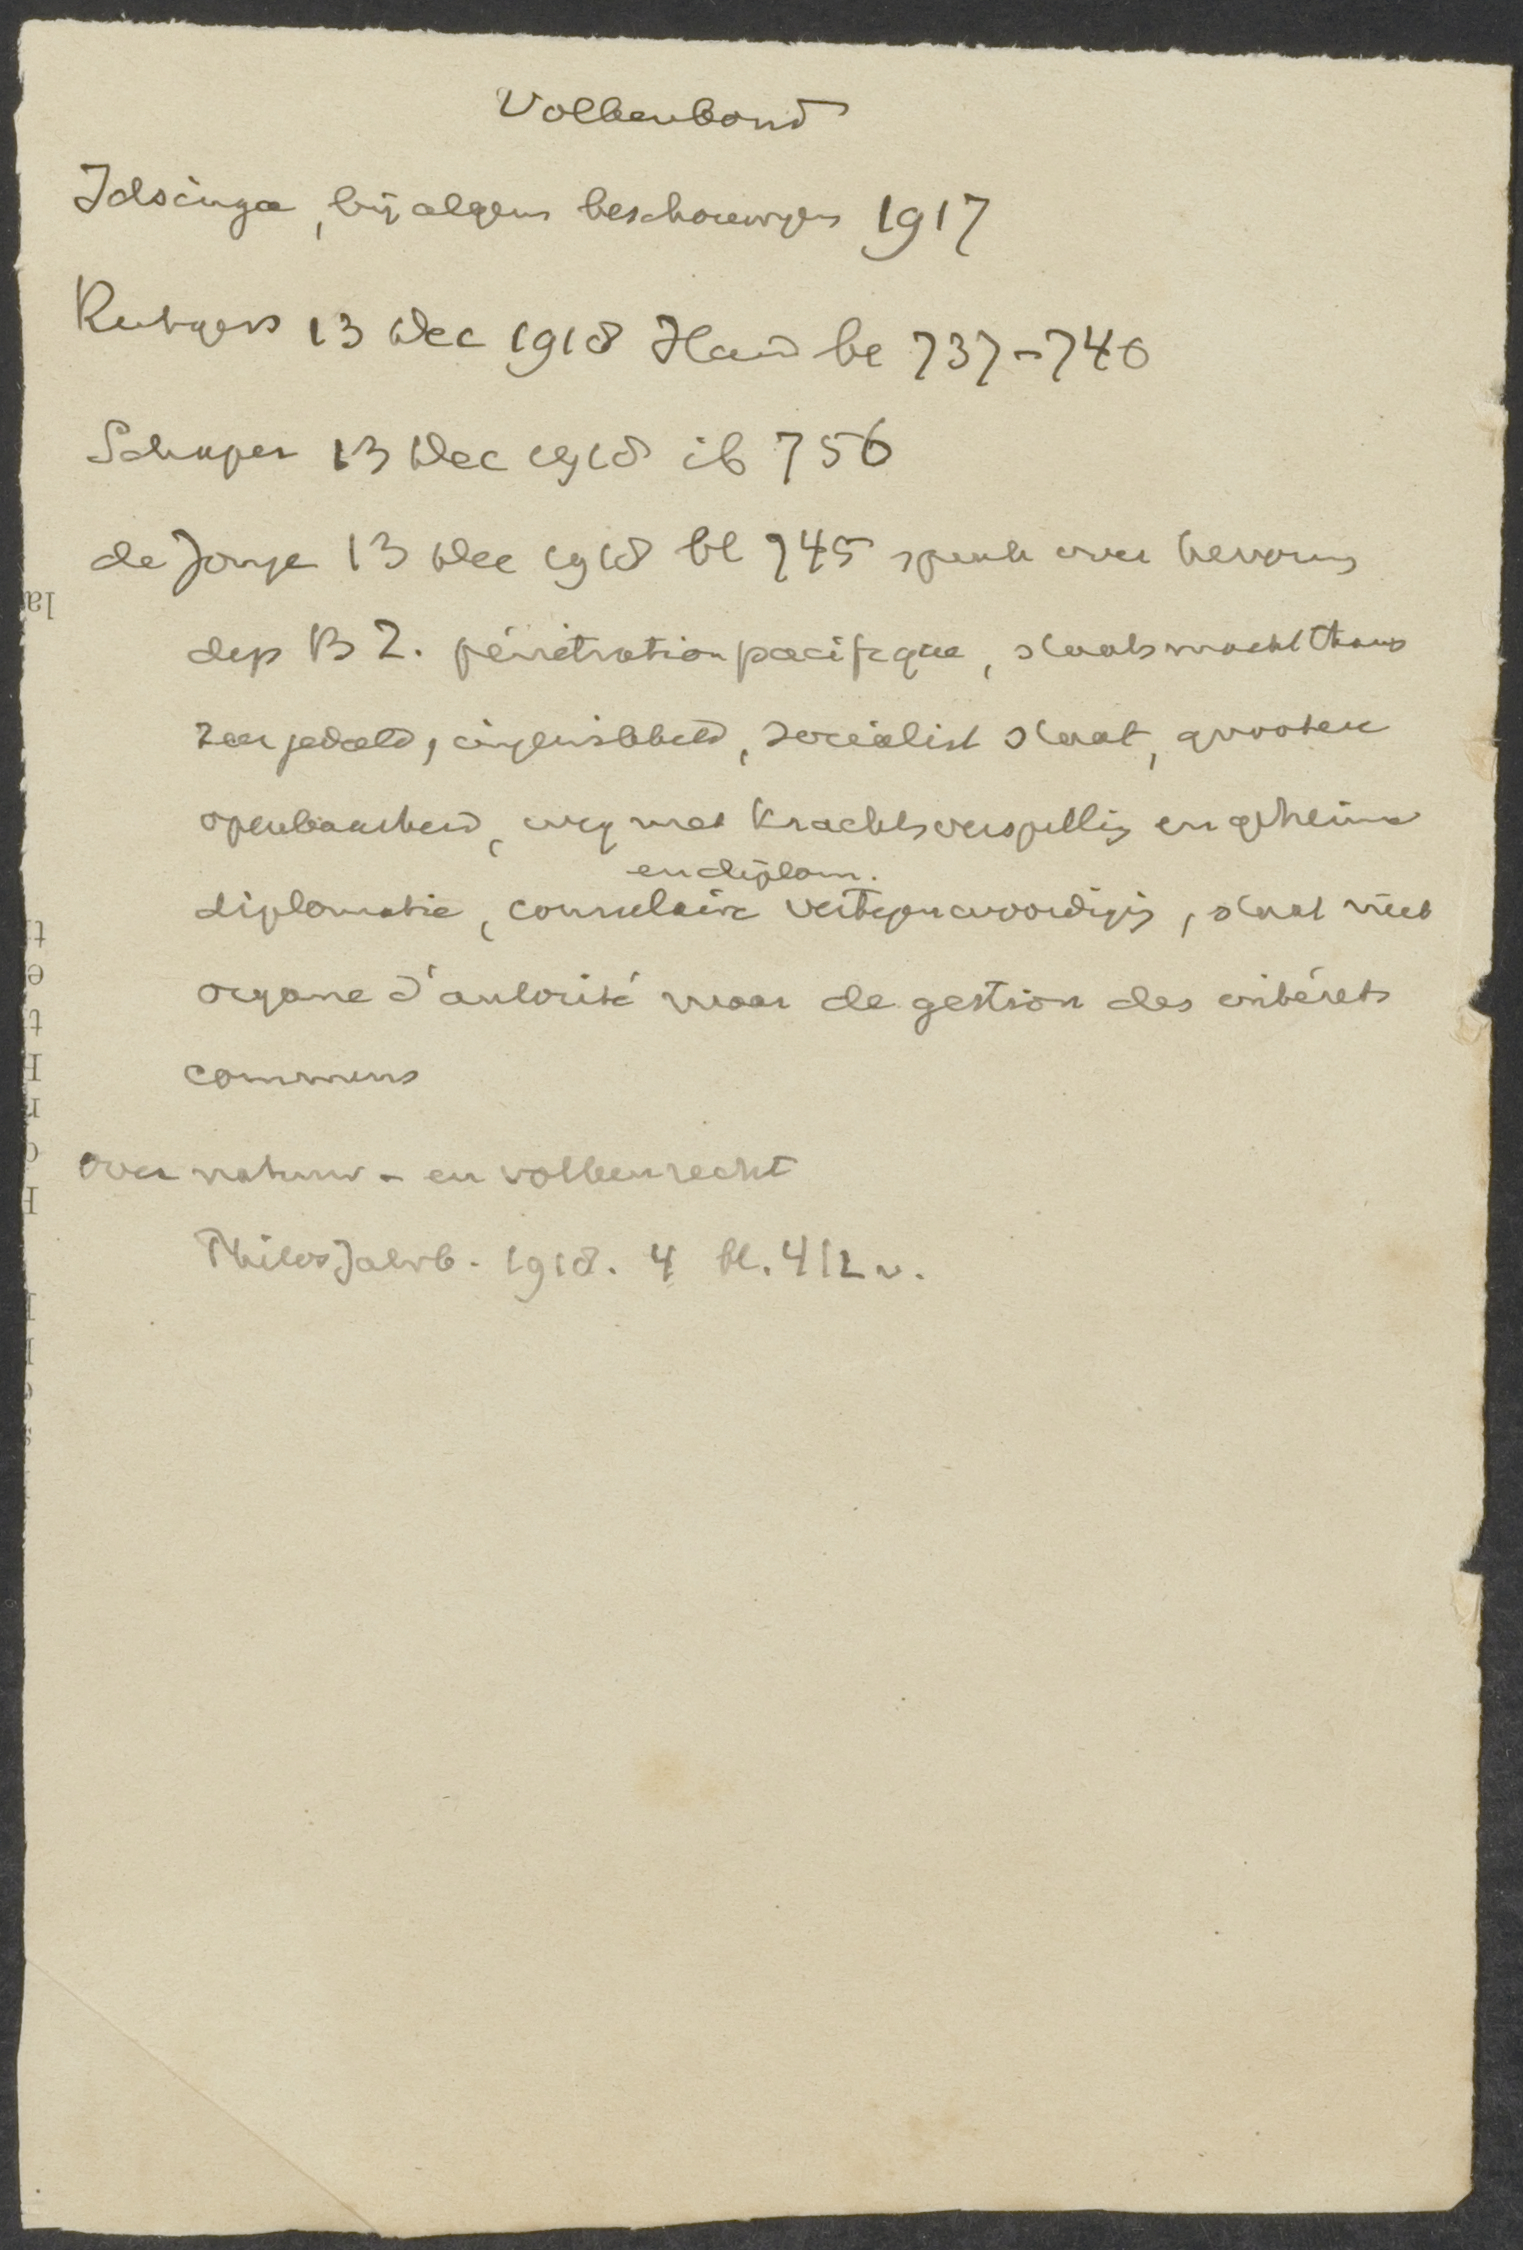 Volkenbond
Idsinga, bij algem beschouwgen 1917
Rutgers 13 Dec 1918 Hand bl 737-740
Schaper 13 Dec 1918 ib 756
de Jonge 13 Dec 1918 bl 745 spreek over hervorm
dep B Z. pénétration pacifique, staatsmacht thans
zeer gedaald, ingewikkeld, socialist staat, grootere
openbaarheid, weg met krachtsverspilling en geheime
en diplom.
diplomatie, consulaire vertegenwoordigig, staat niet
organe d'autorité maar de gestion des intérets
communs
over natuur- en volkenrecht
Philos Jahrb. 1918. 4 bl. 412 v.